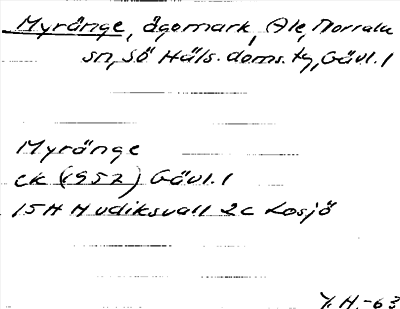 Myränge, ägomark, Ale, Norrala
sn, Sö Häls. doms. tg, Gävl. l
Myränge
ek (1952) Gävl. l
15H Hudiksvall 2c Losjö
Y. H. -63